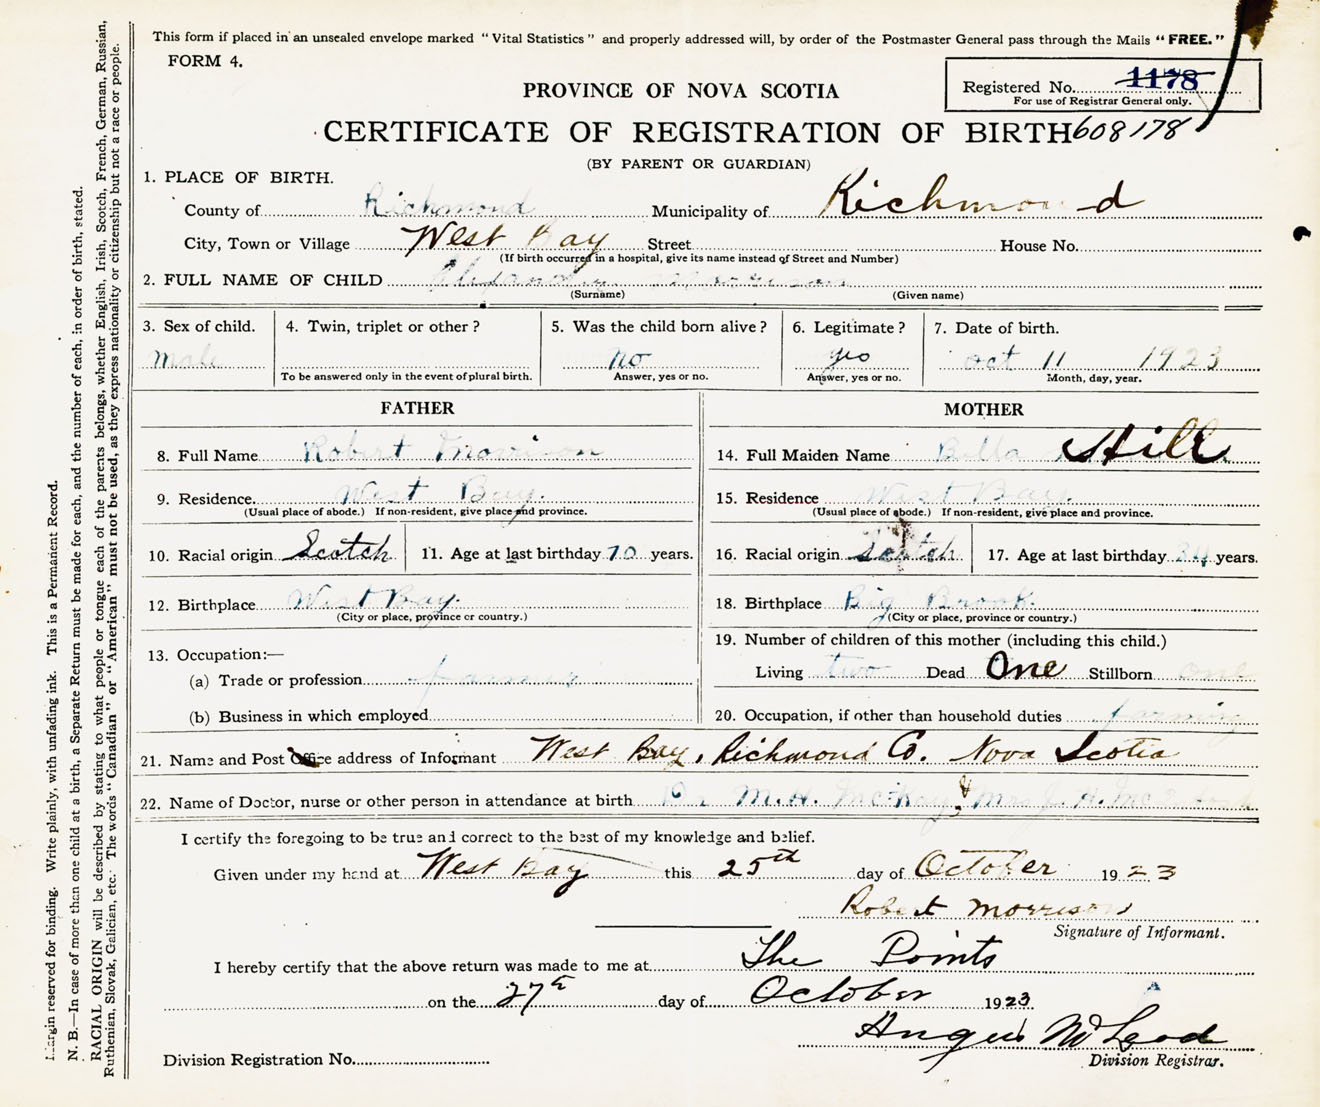 This form if placed in an unsealed envelope marked "Vital Statistics" and properly addressed will, by order of the Postmaster General pass through the Mails "FREE."
FORM 4.
Registered No. 1178
For use of Registrar General only.
PROVINCE OF NOVA SCOTIA
CERTIFICATE OF REGISTRATION OF BIRTH 608178
(BY PARENT OR GUARDIAN)
1. PLACE OF BIRTH.
County of Richmond Municipality of Richmond
City, Town or Village West Bay Street House No.
(If birth occurred in a hospital, give its name instead of Street and Number)
2. FULL NAME OF CHILD
(Surname) (Given name)
3. Sex of child. 4. Twin, triplet or other? 5. Was the child born alive? 6. Legitimate? 7. Date of birth.
Male No yes Oct 11 1923
To be answered only in the event of plural birth. Answer, yes or no. Answer, yes or no. Month, day, year.
FATHER MOTHER
8. Full Name Robert Morrison 14. Full Maiden Name Bella Hill
9. Residence. West Bay. 15. Residence West Bay.
(Usual place of abode.) If non-resident, give place and province. (Usual place of abode.) If non-resident, give place and province.
10. Racial origin Scotch 11. Age at last birthday 70 years. 16. Racial origin Scotch 17. Age at last birthday years.
12. Birthplace West Bay. 18. Birthplace Big Brook.
(City or place, province or country.) (City or place, province or country.)
13. Occupation:— 19. Number of children of this mother (including this child.)
(a) Trade or profession farmer Living two Dead One Stillborn one
(b) Business in which employed 20. Occupation, if other than household duties farming
21. Name and Post Office address of Informant West Bay, Richmond Co. Nova Scotia
22. Name of Doctor, nurse or other person in attendance at birth Dr M. H. McKay & Mrs J. H.
I certify the foregoing to be true and correct to the best of my knowledge and belief.
Given under my hand at West Bay this 25th day of October 1923
Robert Morrison
Signature of Informant.
I hereby certify that the above return was made to me at The Points
on the 27th day of October 1923
Angus McLeod
Division Registration No. Division Registrar.
Margin reserved for binding. Write plainly, with unfading ink. This is a Permanent Record.
N. B.—In case of more than one child at a birth, a Separate Return must be made for each, and the number of each, in order of birth, stated.
RACIAL ORIGIN will be described by stating to what people or tongue each of the parents belongs, whether English, Irish, Scotch, French, German, Russian,
Ruthenian, Slovak, Galician, etc. The words "Canadian" or "American" must not be used, as they express nationality or citizenship but not a race or people.